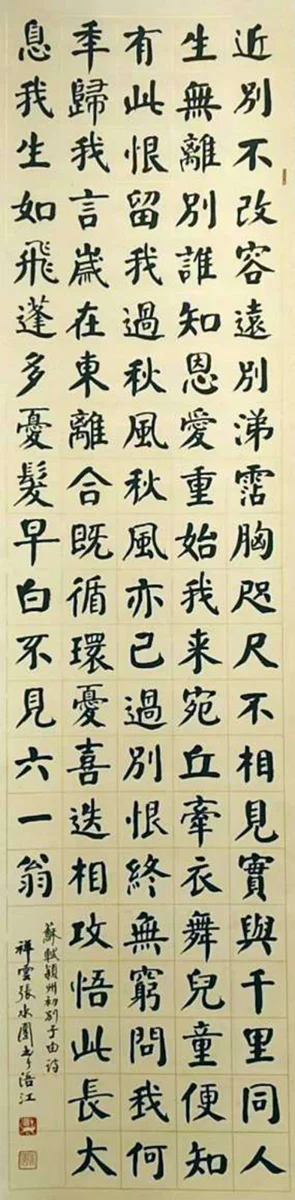 近別不改容遠別涕霑胸咫尺不相見實與千里同人
生無離別誰知恩愛重始我来宛丘牽衣舞兒童便知
有此恨留我過秋風秋風亦已過別恨終無窮問我何
年歸我言歲在東離合既循環憂喜迭相攻悟此長太
息我生如飛蓬多憂髮早白不見六一翁
蘇軾潁州初別子由詩
祥雲張水書於浯江